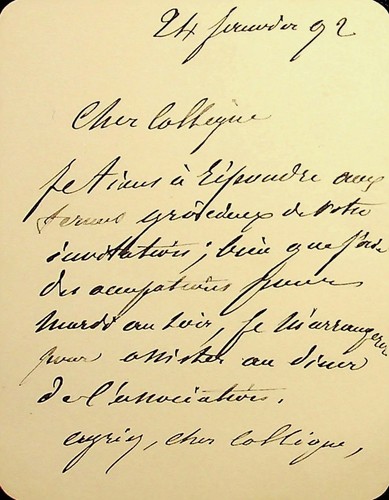 24 janvier 92
Cher Collègue
Je tiens à répondre aux
termes gracieux de votre
invitation; bien que j'aie
des occupations pour
mardi au soir, je m'arrangerai
pour assister au diner
de l'association.
cher Collègue,